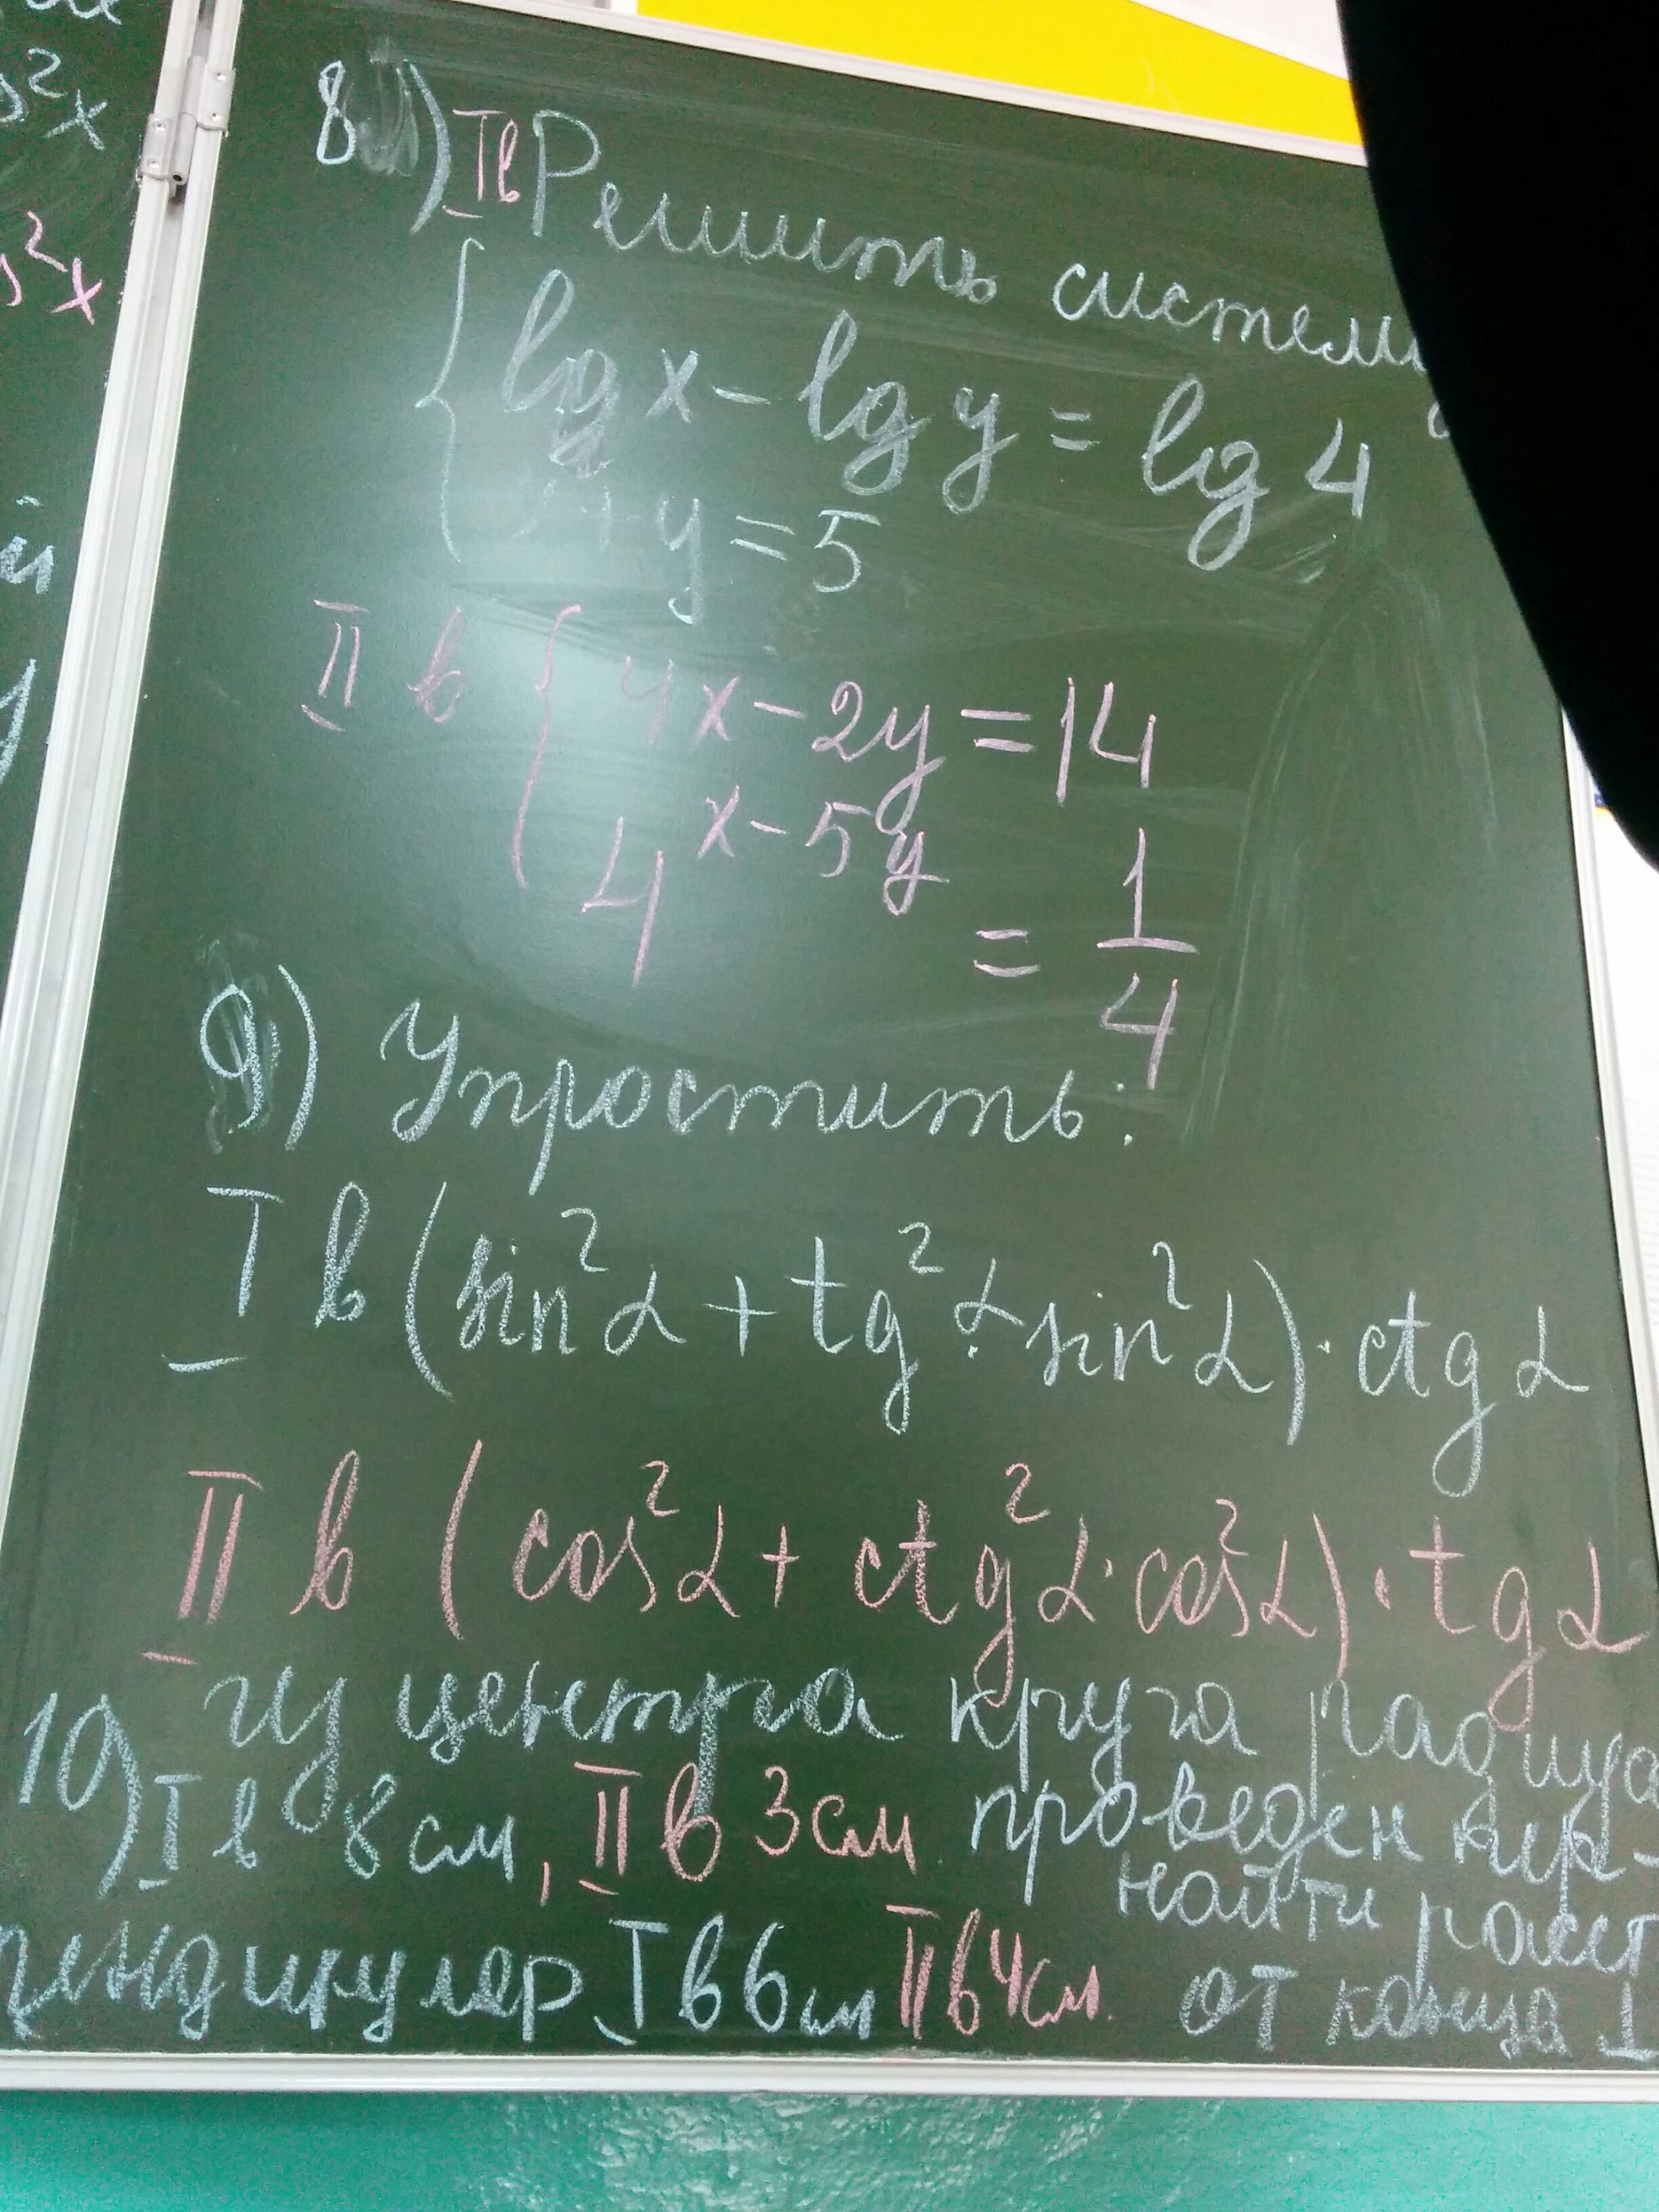 8) I в Решить систем
lg x - lg y = lg 4
+ y = 5
II в 4x - 2y = 14
4^(x-5y) = 1/4
9) Упростить:
I в (sin²α + tg²α · sin²α) · ctg α
II в (cos²α + ctg²α · cos²α) · tg α
10) Из центра круга радиуса
I в 8 см, II в 3 см проведен пер-
найти расст
пендикуляр I в 6 см II в 4 см. от конца ⊥
s²x
s²x
й